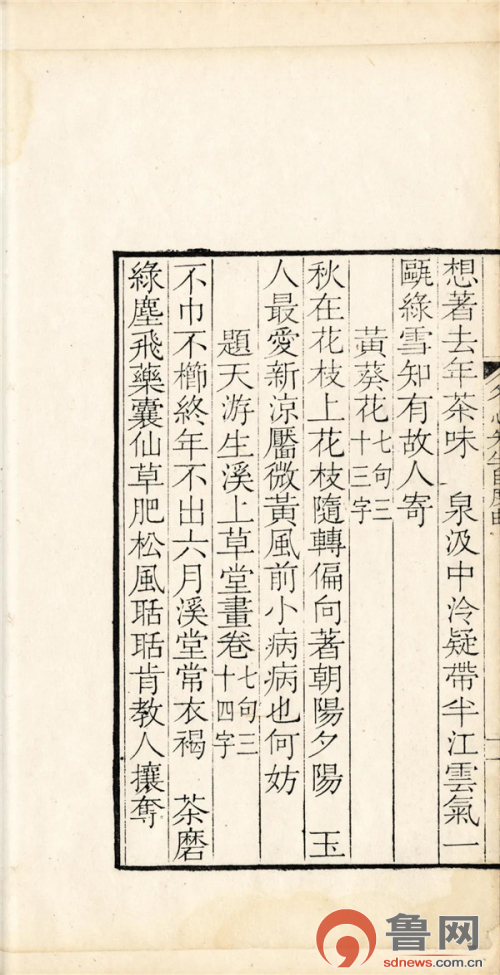 想著去年茶味　泉汲中泠疑帶半江雲氣一
甌綠雪知有故人寄
黃葵花七句三十三字
秋在花枝上花枝隨轉偏向著朝陽夕陽　玉
人最愛新涼靨微黃風前小病病也何妨
題天游生溪上草堂畫卷七句三十四字
不巾不櫛終年不出六月溪堂常衣褐　茶磨
綠塵飛藥囊仙草肥松風聒聒肯教人攘奪
鲁网
sdnews.com.cn